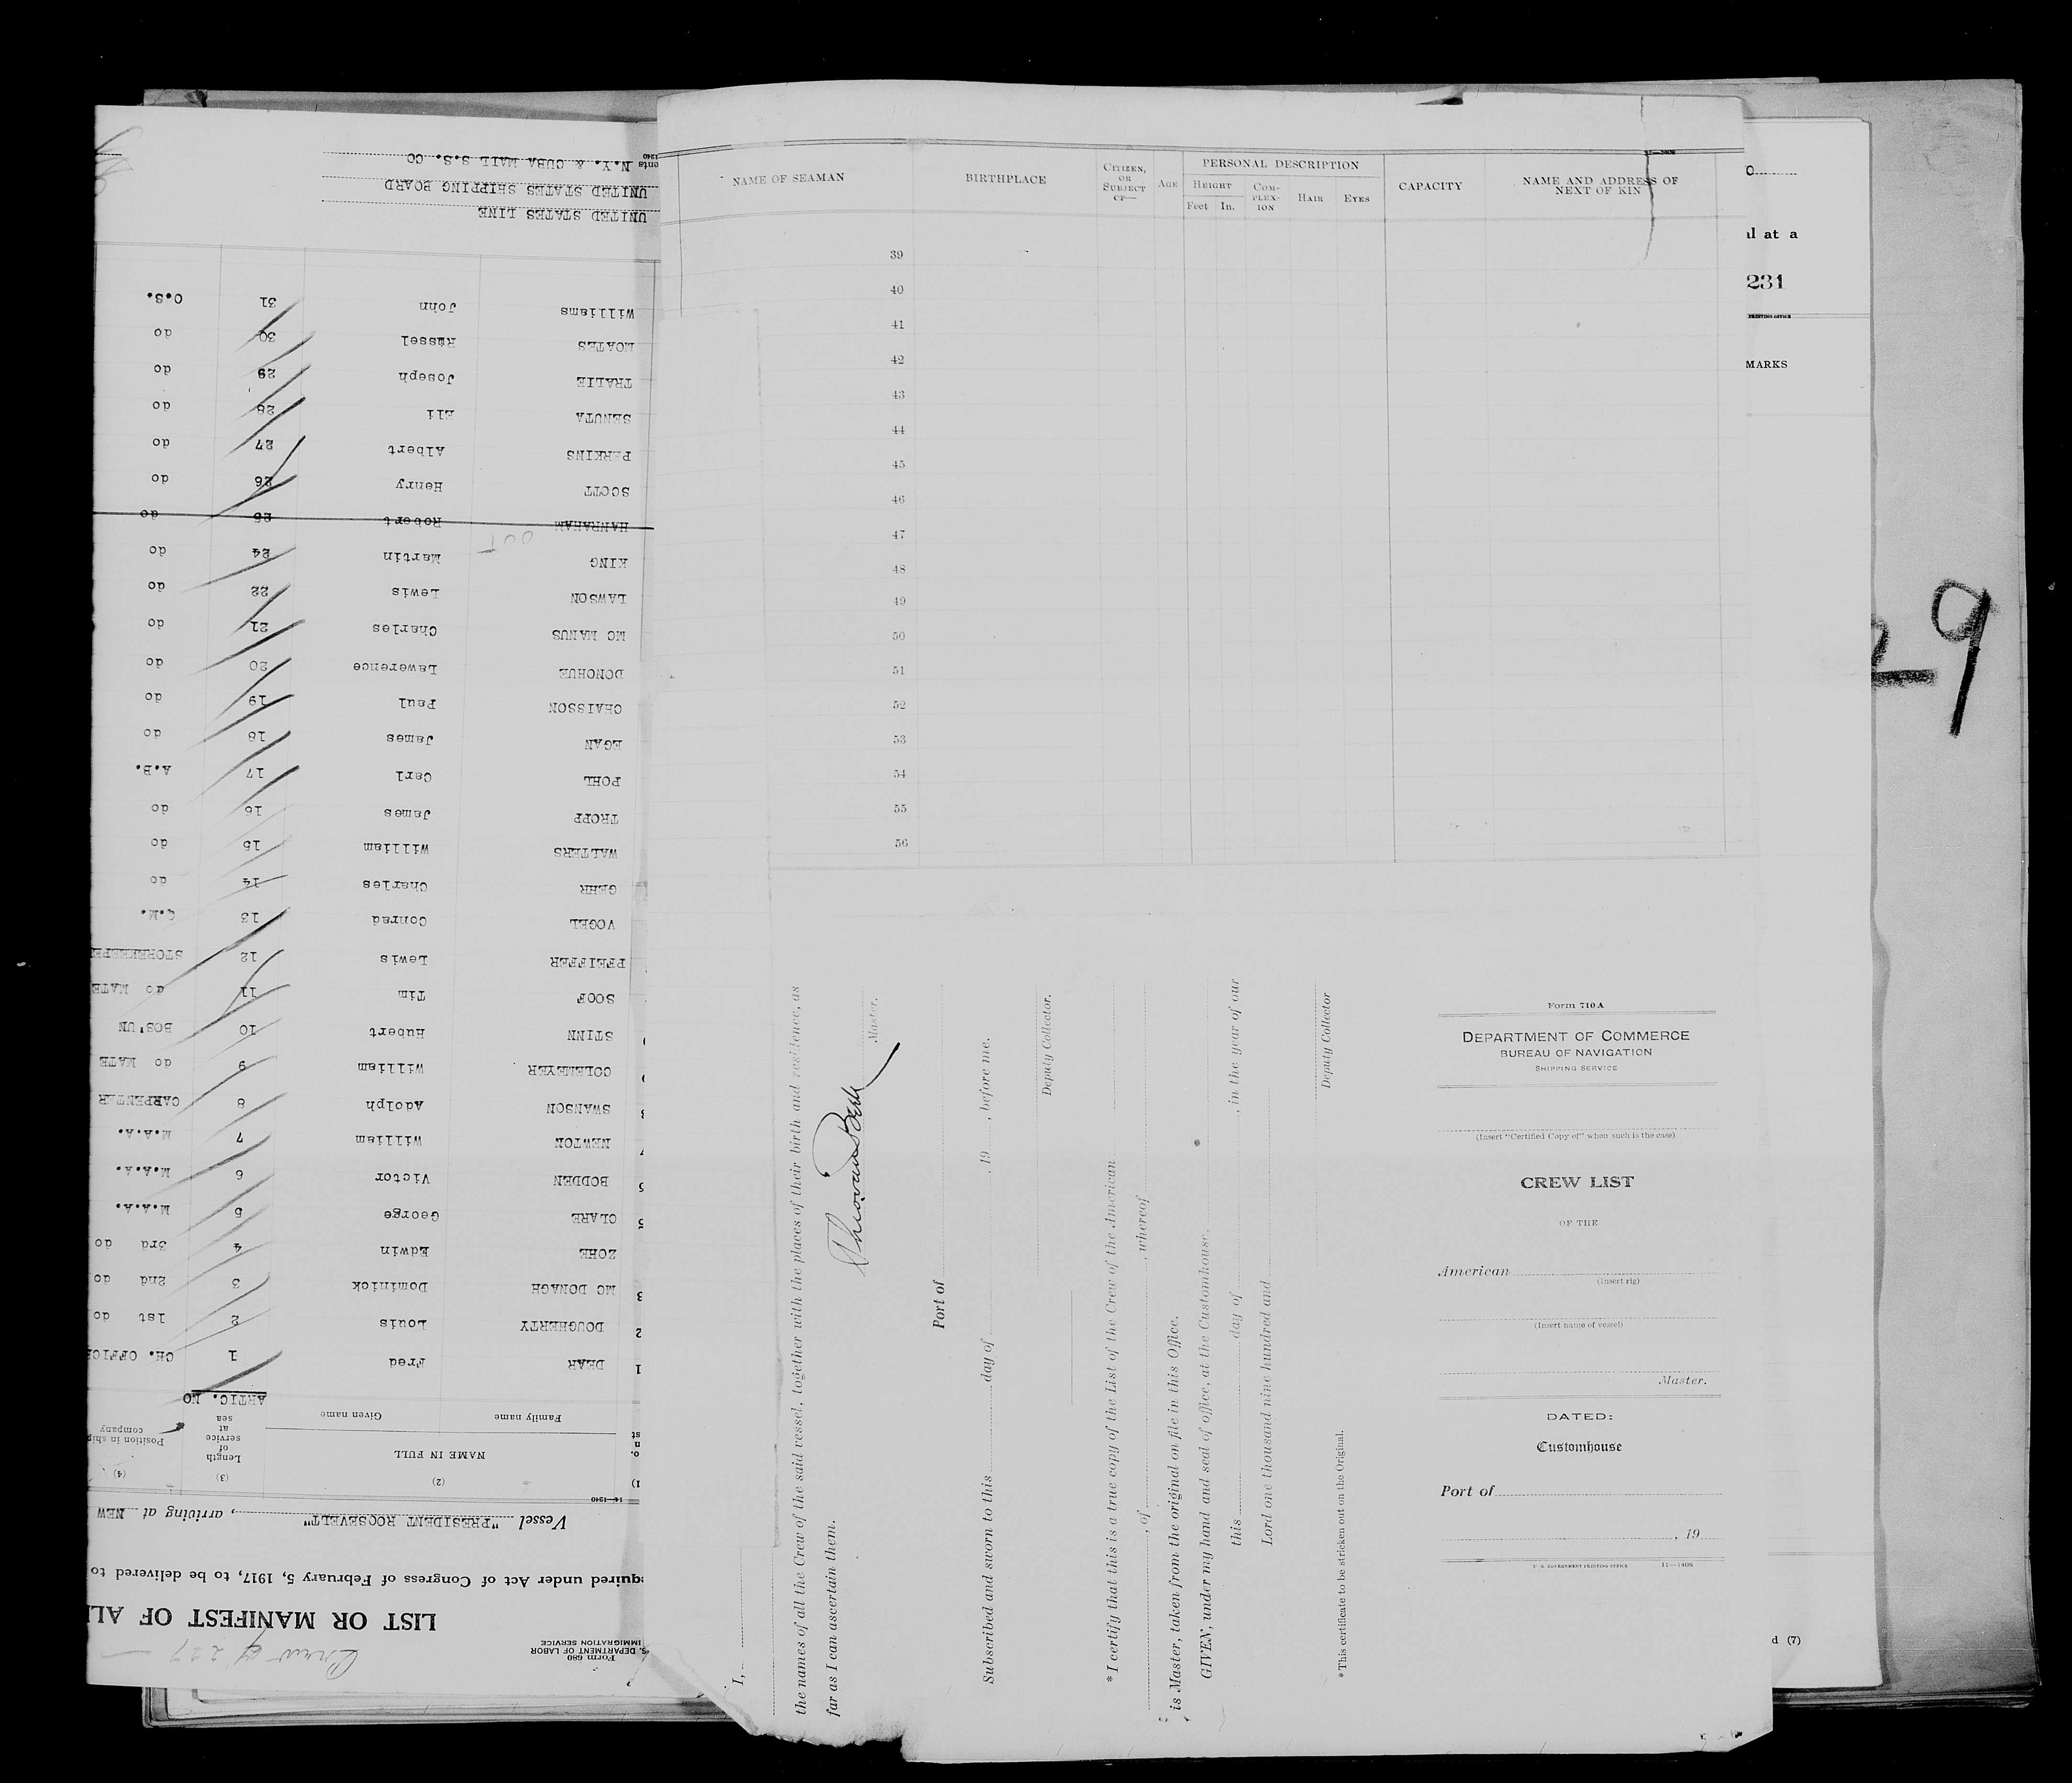 Form 680
U.S. DEPARTMENT OF LABOR
IMMIGRATION SERVICE
Crew of 227
LIST OR MANIFEST OF AL
quired under Act of Congress of February 5, 1917, to be delivered to
Vessel "PRESIDENT ROOSEVELT", arriving at NEW
14—1240
1) (2) (3) (4)
NAME IN FULL
Family name Given name
Length of service at sea
Position in ship company
ARTIC. NO
1 DEAR Fred 1 CH. OFFIC
2 DOUGHERTY Louis 2 1st do
3 MC DONAGH Dominick 3 2nd do
ZOHE Edwin 4 3rd do
5 CLARE George 5 M.A.A.
BODDEN Victor 6 M.A.A.
7 NEWTON William 7 M.A.A.
8 SWANSON Adolph 8 CARPENTER
COLEMEYER William 9 do MATE
STINN Hubert 10 BOS'UN
SOOF Tim 11 do MATE
PFEIFFER Lewis 12 STOREKEEPE
VOGEL Conrad 13 Q.M.
GEHR Charles 14 do
WALTERS William 15 do
TROPP James 16 do
POHL Carl 17 A.B.
EGAN James 18 do
CHAISSON Paul 19 do
DONOHUE Lawerence 20 do
MC MANUS Charles 21 do
LAWSON Lewis 22 do
KING Martin 24 do
OUT
HANRAHAM Robert 25 do
SCOTT Henry 26 do
PERKINS Albert 27 do
SENUTA Eli 28 do
TRALIE Joseph 29 do
MOATES Russel 30 do
Williams John 31 O.S.
UNITED STATES LINE
UNITED STATES SHIPPING BOARD
ents N.Y. & CUBA MAIL S.S. CO
1240
11—1408
NAME OF SEAMAN
BIRTHPLACE
CITIZEN, OR SUBJECT OF—
AGE
PERSONAL DESCRIPTION
HEIGHT
Feet In.
COM-PLEX-ION
HAIR
EYES
CAPACITY
NAME AND ADDRESS OF NEXT OF KIN
39
40
41
42
43
44
45
46
47
48
49
50
51
52
53
54
55
56
I,
the names of all the Crew of the said vessel, together with the places of their birth and residence, as
far as I can ascertain them.
Master.
Port of
Subscribed and sworn to this day of , 19 , before me.
Deputy Collector.
* I certify that this is a true copy of the List of the Crew of the American
, of , whereof
is Master, taken from the original on file in this Office.
GIVEN, under my hand and seal of office, at the Customhouse,
this day of , in the year of our
Lord one thousand nine hundred and
Deputy Collector
* This certificate to be stricken out on the Original.
Form 710A
DEPARTMENT OF COMMERCE
BUREAU OF NAVIGATION
SHIPPING SERVICE
(Insert "Certified Copy of" when such is the case)
CREW LIST
OF THE
American
(Insert rig)
(Insert name of vessel)
Master.
DATED:
Customhouse
Port of
, 19
U. S. GOVERNMENT PRINTING OFFICE 11—1408
O
al at a
231
PRINTING OFFICE
MARKS
29
d (7)